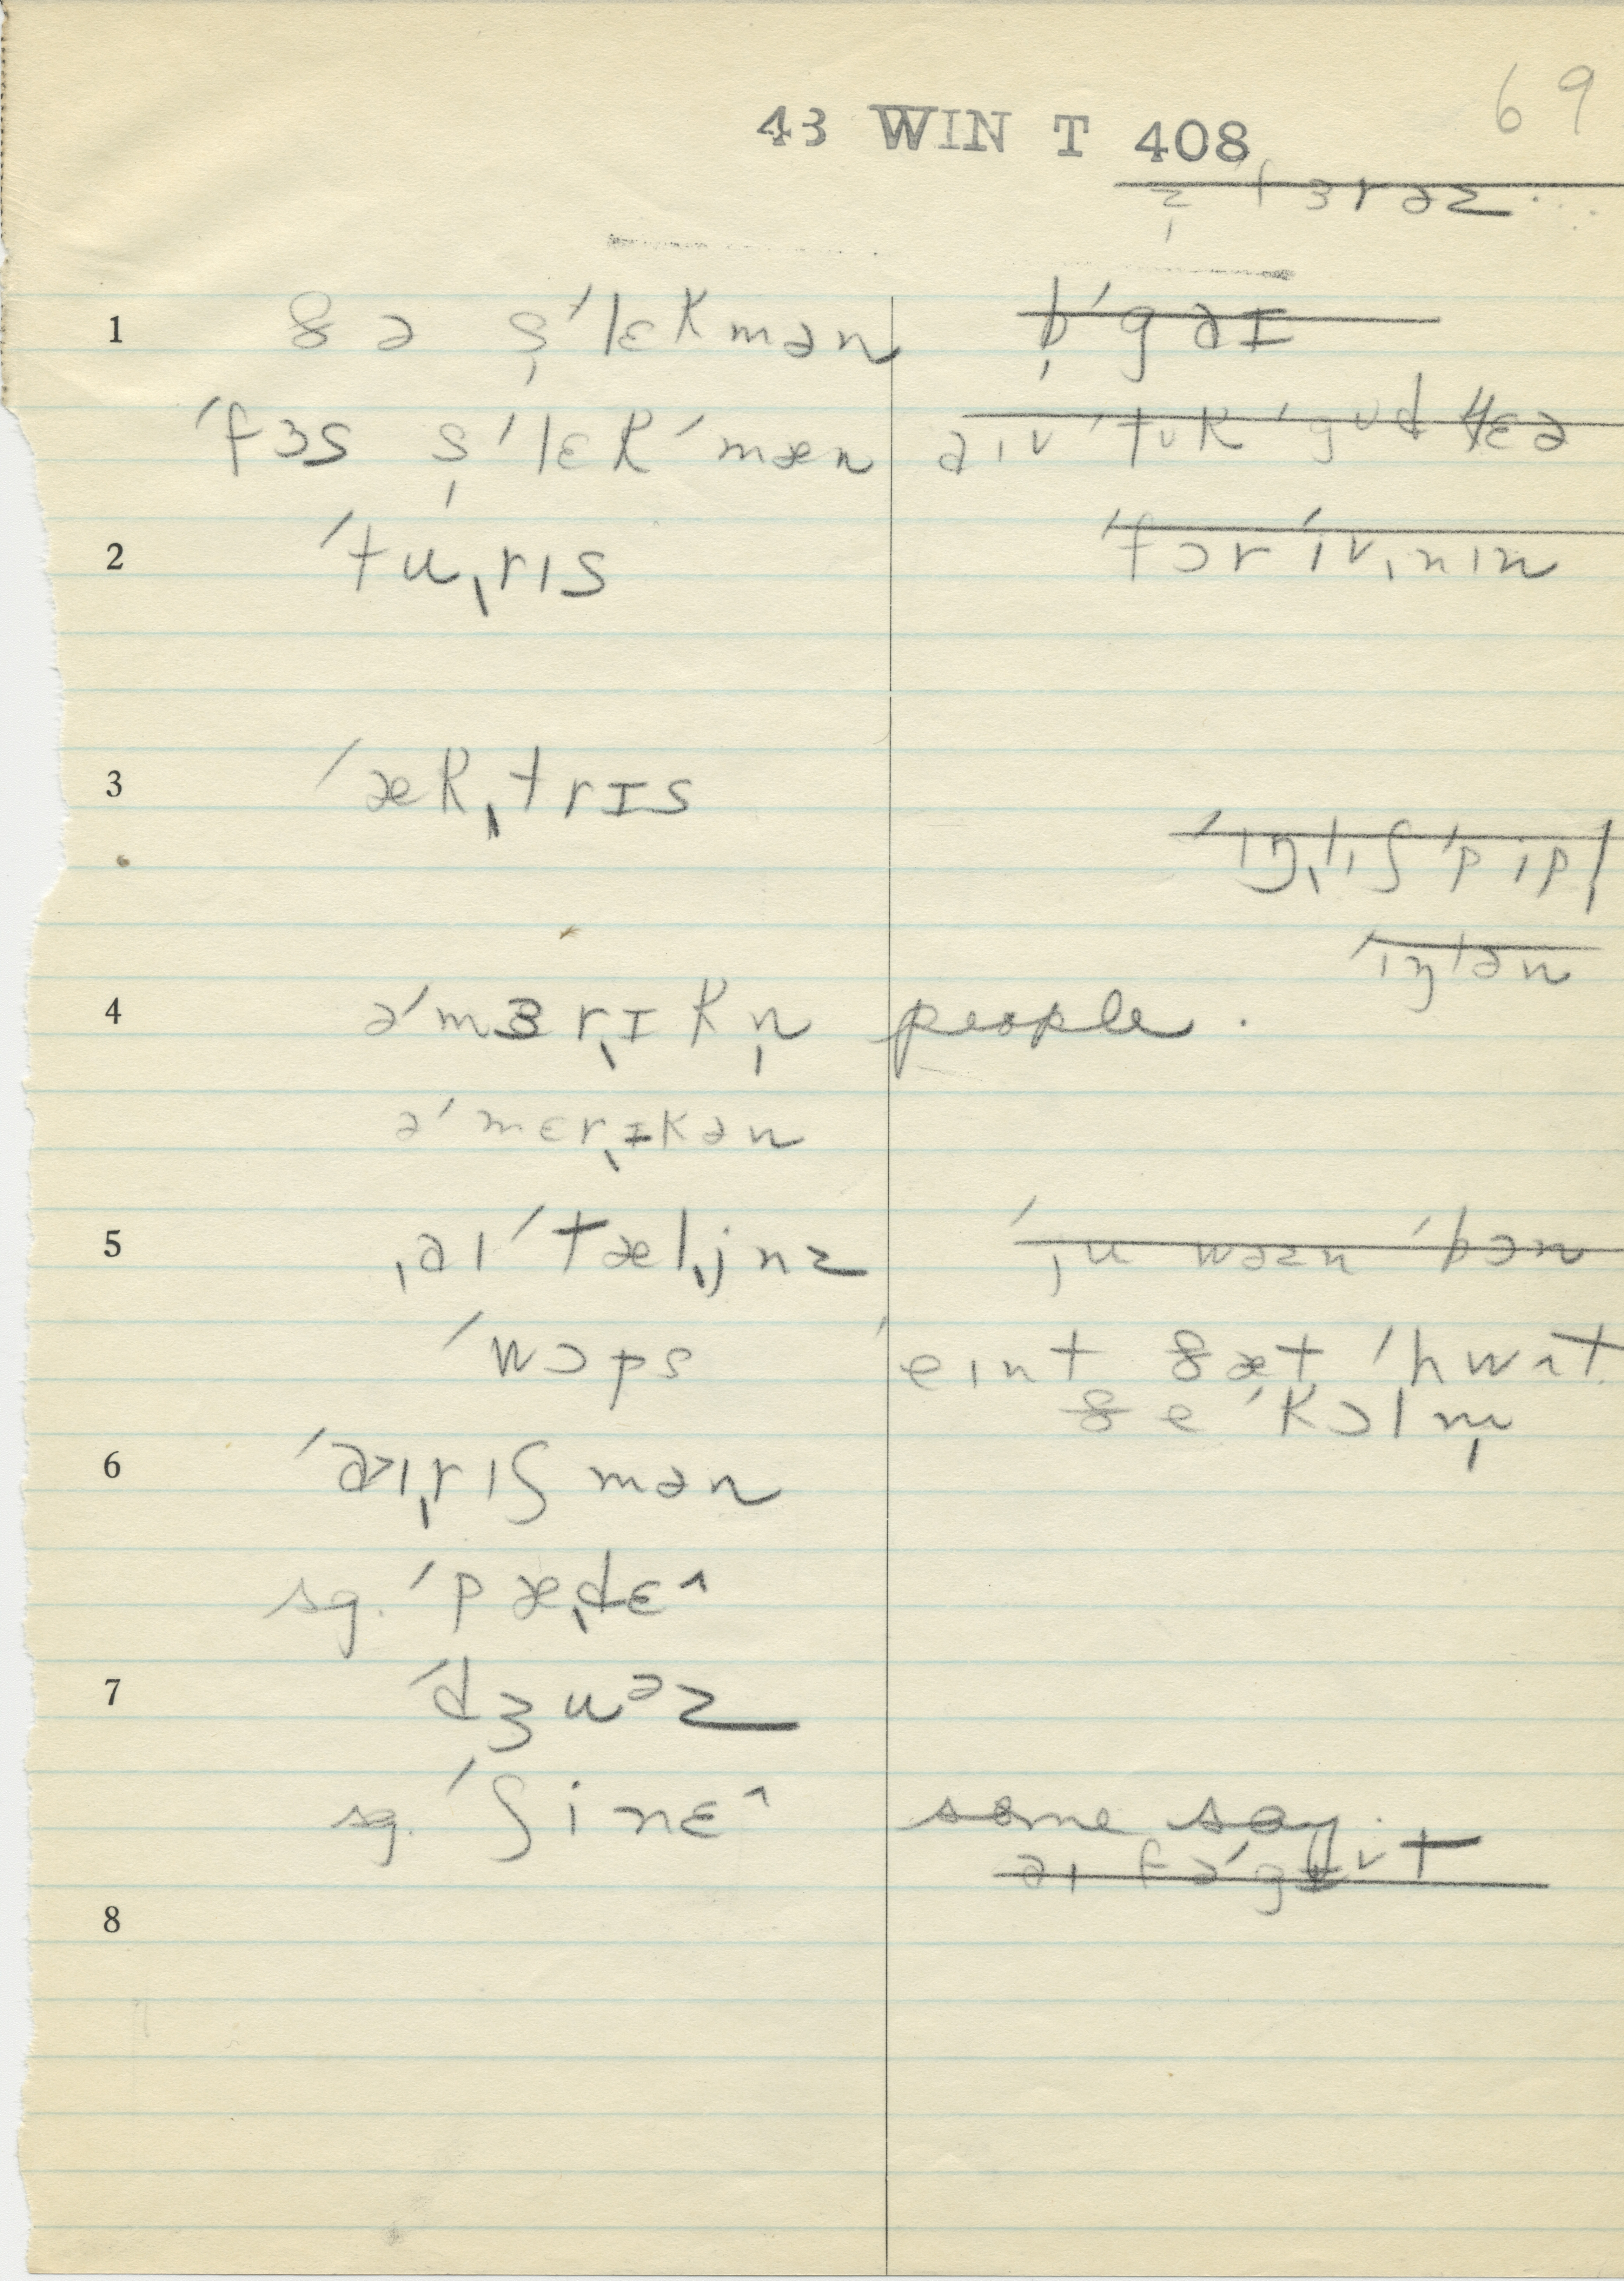 69
43 WIN T 408
z̩ fɜrəz
1 ðə s̩ˈlɛkmən b̩ˈgaɪ
ˈfɜs s̩ˈlɛkˈmæn aɪv ˈtʊk ˈgʊd
2 ˈtuˌrɪs ˈfɔr ˈivˌnɪn
3 ˈækˌtrɪs
ˈɪŋˌlɪʃ ˈpipl̩
ˈɪŋlən
4 əˈmɜrˌɪkn̩ people.
əˈmɛrˌɪkən
5 ˌaɪˈtælˌjnz ˈju wəzn ˈbɔn
ˈwɔps ˈeɪnt ðæt ˈhwʌt
ðe ˈkɔl m̩
6 ˈaɪˌrɪʃmən
sg. ˈpæˌdɛ^
7 ˈdʒuᵊz
sg. ˈʃinɛ^ some say.
aɪ fəˈgɪvt
8